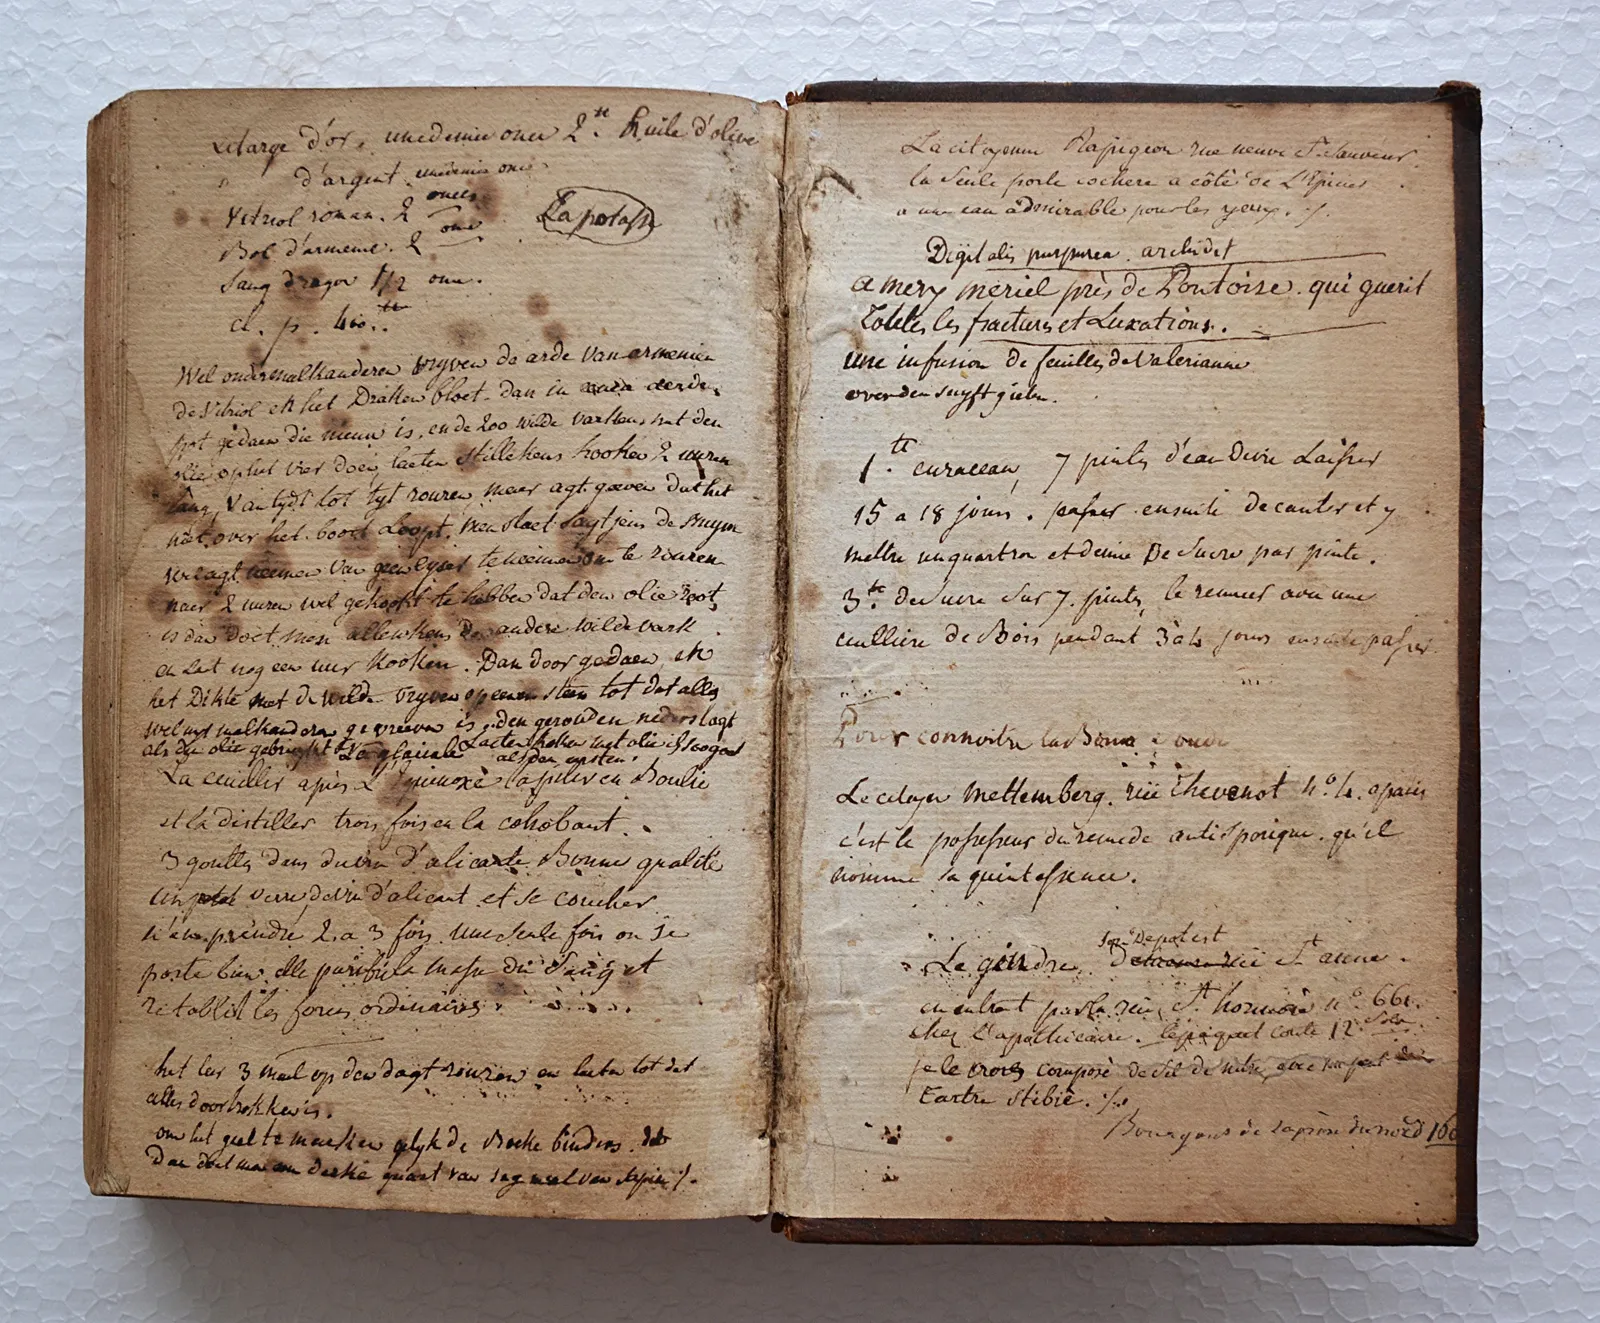 Letarge d'or, unedemie once 2 tt. huile d'olive
" d'argent unedemie once
Vitriol roman. 2 onces
Bol d'armenie. 2 once
La potasse
Sang dragon 1/2 once.
Wel ondermalkanderen vryven de arde van armenien
de vitriol en het Draken bloet. dan in
pot gedaen die nieuw is, en de 200 wilde varkens met den
olie op het vier doen, laeten stillekens kooken 2 uuren
lang, van tydt tot tyt rouren, maer agt geeven dat het
niet over het boort Loopt. men moet
van geen eyser te neemen om te rouren
naer 2 uuren wel gekookt te hebben dat den olie root
is dan doet men allenskens de andere wilde vark
en laet nog een uur kooken. Dan door gedaen, en
het Dikke met de wilde vryven op eenen steen tot dat alles
wel met malkanderen gevreven is, den
als den olie gebruykt Laeten koken met olie
La cuillir après l'equinoxe la piler en Boulie
et la distiller trois fois en la cohobant.
3 gouttes dans du vin d'alicante Bonne qualité
un petit verre de vin d'alicant et se coucher
n'en prendre 2 a 3 fois une seule fois on se
porte bien, elle purifie la masse du Sang et
retablit les forces ordinaires.
het leer 3 mael op den dagt rouren en laeten tot dat
alles doortrokken is.
om het geel te maeken gelyk de Boeke binders.
Dan doet men een
La citoyenne Rapigeon rue neuve St. Sauveur.
la seule porte cochere a côté de L'Epicier
a une eau admirable pour les yeux. /.
Digitalis purpurea.
a mery meriel près de Pontoise. qui guerit
Toutes les fractures et Luxations.
une infusion de feuilles de Valerianne
1 tt. curaceau, 7 pintes d'eau de vie Laisser
15 a 18 jours. passer ensuite decanter et y
mettre un quartron et demie De Sucre par pinte.
3 tt. de Sucre sur 7. pintes, le remuer avec une
cuilliere de Bois pendant 3 a 4 jours ensuite passer
Pour connoitre la Bonne
Le citoyen Mettemberg. rüe thevenot n°. 4. a paris
c'est le possesseur du remede antisporique. qu'il
nomme sa quintessence.
son Depot est
Le gendre, rüe St anne.
en entrant par la rue, St honnoré n°. 661.
chez L'apothicaire. le paquet coute 12 sols
je le crois composé de Sel de nitre avec un peut de
Tartre stibié. /.